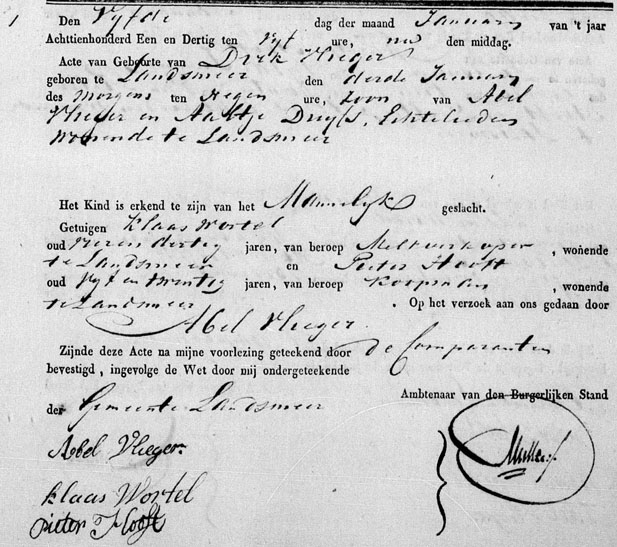 1
Den Vyfde dag der maand Januarij van 't jaar
Achttienhonderd Een en Dertig ten Vyf ure, na den middag.
Acte van Geboorte van Dirk Vlieger
geboren te Landsmeer den derde Januarij
des morgens ten Negen ure, Zoon van Abel
Vlieger en Aaltje Echtelieden
Wonende te Landsmeer
Het Kind is erkend te zijn van het Mannelyk geslacht.
Getuigen Klaas Wortel
oud Vier en dertig jaren, van beroep Melkverkoper, wonende
te Landsmeer en Pieter Hooft
oud Vyf en twintig jaren, van beroep Koopman, wonende
te Landsmeer. Op het verzoek aan ons gedaan door
Abel Vlieger
Zijnde deze Acte na mijne voorlezing geteekend door de Comparanten
bevestigd, ingevolge de Wet door mij ondergeteekende
Ambtenaar van den Burgerlijken Stand
der Gemeente Landsmeer
Abel Vlieger.
Klaas Wortel
Pieter Hooft